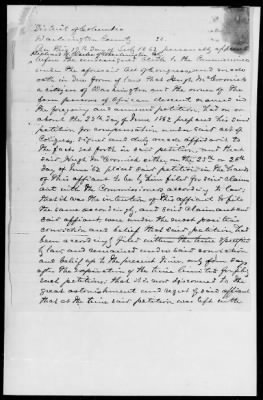 District of Columbia
Washington County ss.
On this 12th day of July 1862 personally appeared
before the undersigned Clerk to the Commissioners
under the aforesaid Act of Congress and made
oath in due form of law that Hugh McCormick
a citizen of Washington and the owner of the
persons of African descent named in
the foregoing and annexed petition, did on or
about the 23rd day of June 1862 prepare his said
petition for compensation under said act of
Congress, signed and duly made affidavit to
the facts set forth in said petition, and that
said Hugh McCormick either on the 25th or 26th
day of June 62 placed said petition in the hands
of this affiant to be by him filed for said claim
ant with the Commissioners according to law,
that it was the intention of this affiant to file
the same accordingly, and said claimant and
said affiant were under the most positive
conviction and belief that said petition had
been accordingly filed within the time
of law and remained under said conviction
and belief up to the present time only four days
after the expiration of the time limited for filing
such petitions; that it is now discovered to the
great astonishment and regret of said affiant
that at the time said petition was left with